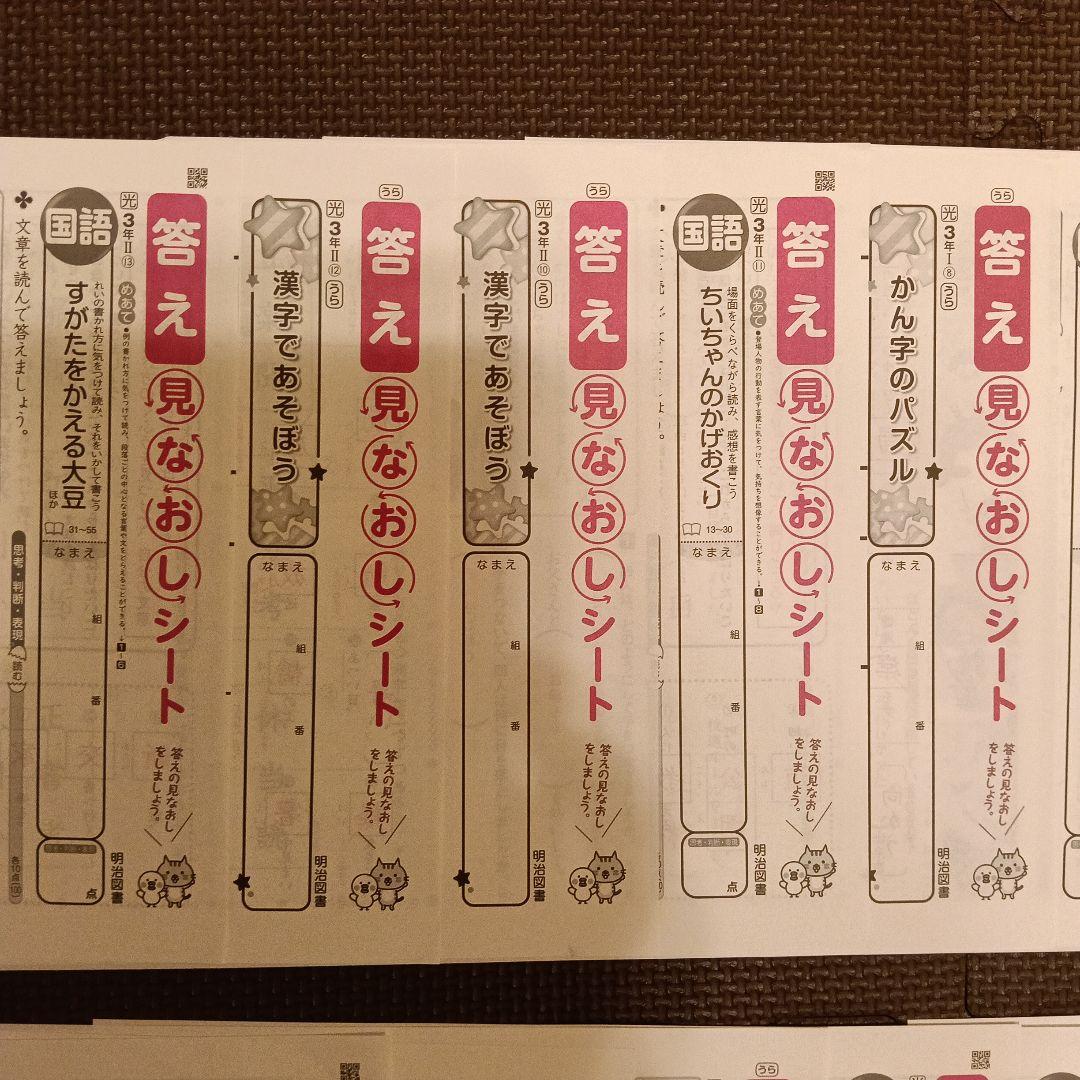 うら
答え
見なおしシート
答えの見なおし
をしましょう。
光
3年Ⅰ⑧
うら
かん字のパズル
なまえ
組
番
明治図書
答え
見なおしシート
答えの見なおし
をしましょう。
光
3年Ⅱ⑪
めあて
●登場人物の行動を表す言葉に気をつけて、気持ちを想像することができる。→1~8
国語
場面をくらべながら読み、感想を書こう
ちいちゃんのかげおくり
13~30
なまえ
組
番
思考・判断・表現
点
明治図書
うら
答え
見なおしシート
答えの見なおし
をしましょう。
光
3年Ⅱ⑩
うら
漢字であそぼう
なまえ
組
番
明治図書
うら
答え
見なおしシート
答えの見なおし
をしましょう。
光
3年Ⅱ⑫
うら
漢字であそぼう
なまえ
組
番
明治図書
答え
見なおしシート
答えの見なおし
をしましょう。
光
3年Ⅱ⑬
めあて
●例の書かれ方に気をつけて読み、段落ごとの中心となる言葉や文をとらえることができる。→1~6
国語
れいの書かれ方に気をつけて読み、それをいかして書こう
すがたをかえる大豆
ほか
31~55
なまえ
組
番
思考・判断・表現
点
明治図書
文章を読んで答えましょう。
思考・判断・表現
読む
各10点
100
うら
光